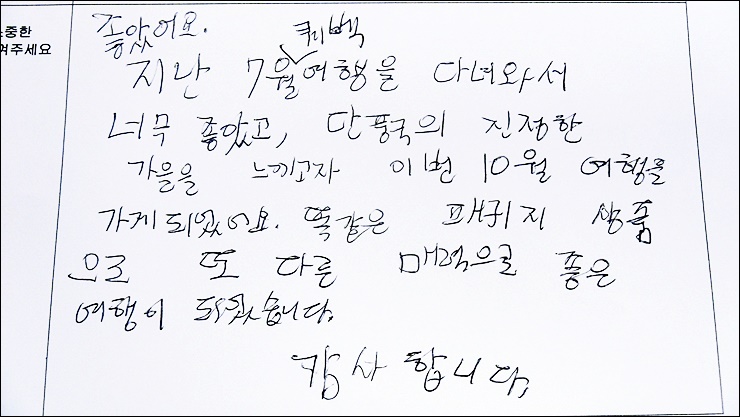 소중한
겨주세요
좋았어요.
퀘벡
지난 7월 여행을 다녀와서
너무 좋았고, 단풍국의 진정한
가을을 느끼고자 이번 10월 여행을
가게 되었어요. 똑같은 패키지 상품
으로 또 다른 매력으로 좋은
여행이 되었습니다.
감사합니다.